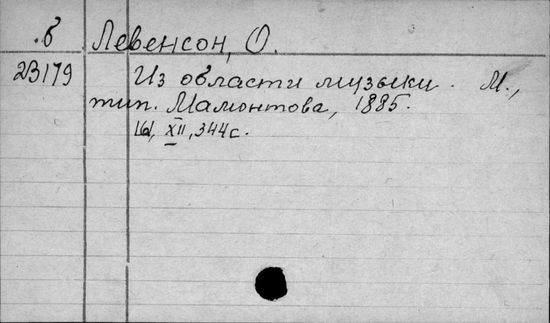 .б Левенсон, О.
23179 Из области музыки. М.,
тип. Мамонтова, 1885.
XII, 344 с.